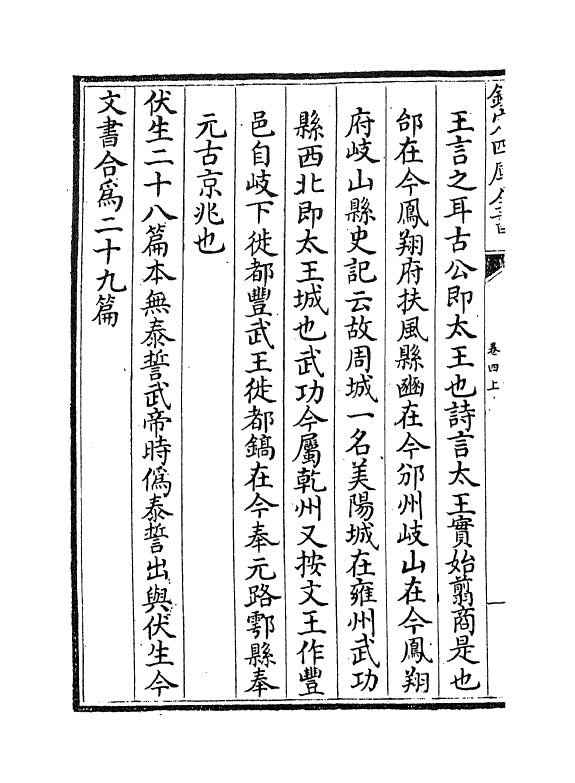 欽定四庫全書
卷四上
王言之耳古公即太王也詩言太王實始翦商是也
邰在今鳳翔府扶風縣豳在今邠州岐山在今鳳翔
府岐山縣史記云故周城一名美陽城在雍州武功
縣西北即太王城也武功今屬乾州又按文王作豐
邑自岐下徙都豐武王徙都鎬在今奉元路鄠縣奉
元古京兆也
伏生二十八篇本無泰誓武帝時僞泰誓出與伏生今
文書合爲二十九篇